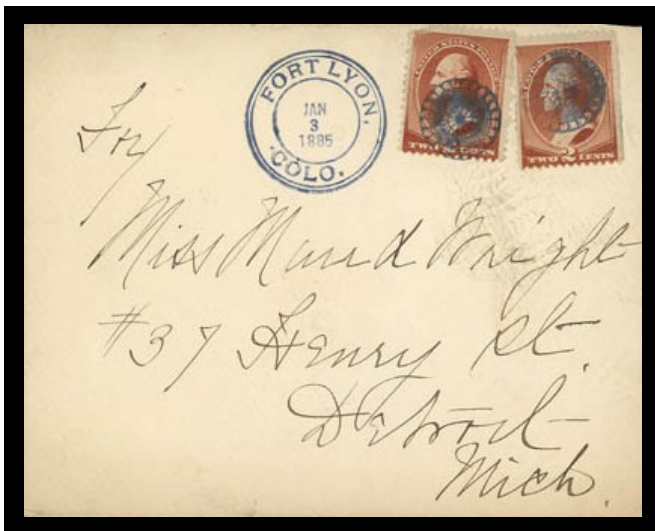 FORT LYON,
JAN
3
1885
COLO.
TWO 2 CENTS
For
Miss Maud Wright
#37 Henry St.
Detroit
Mich.